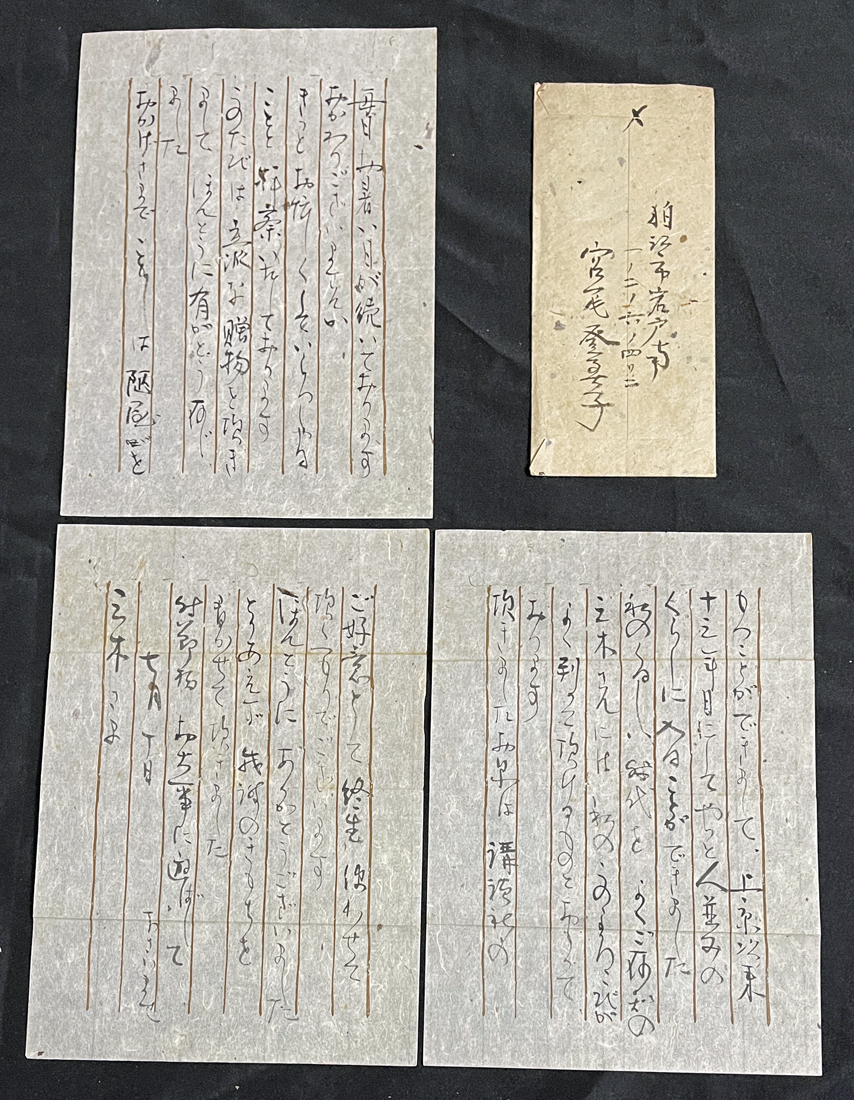 毎日お暑い日が続いております
おかわりございませんか、
きっとお忙しくしていらっしゃる
ことと拝察いたしております
このたびは立派な贈物を頂き
まして ほんとうに有がとう存じ
ました
おかげさまで ことしは陋屋を
もつことができまして、上京以来
十三年目にしてやっと人並みの
くらしに入ることができました
私のくるしい時代を よくご存知の
三木さんには 私のこのよろこびが
よく判って頂けるものとおもって
おります
頂きましたお品は 講談社の
ご好意として 終生使わせて
頂くつもりでございます
ほんとうに ありがとうございました
とりあえず 感謝のきもちを
書かせて頂きました
時節柄 お大事に遊ばして
七月 十日
三木さま
〆
狛江市岩戸南
一ノ二ノ六ノ四〇二
宮尾登美子